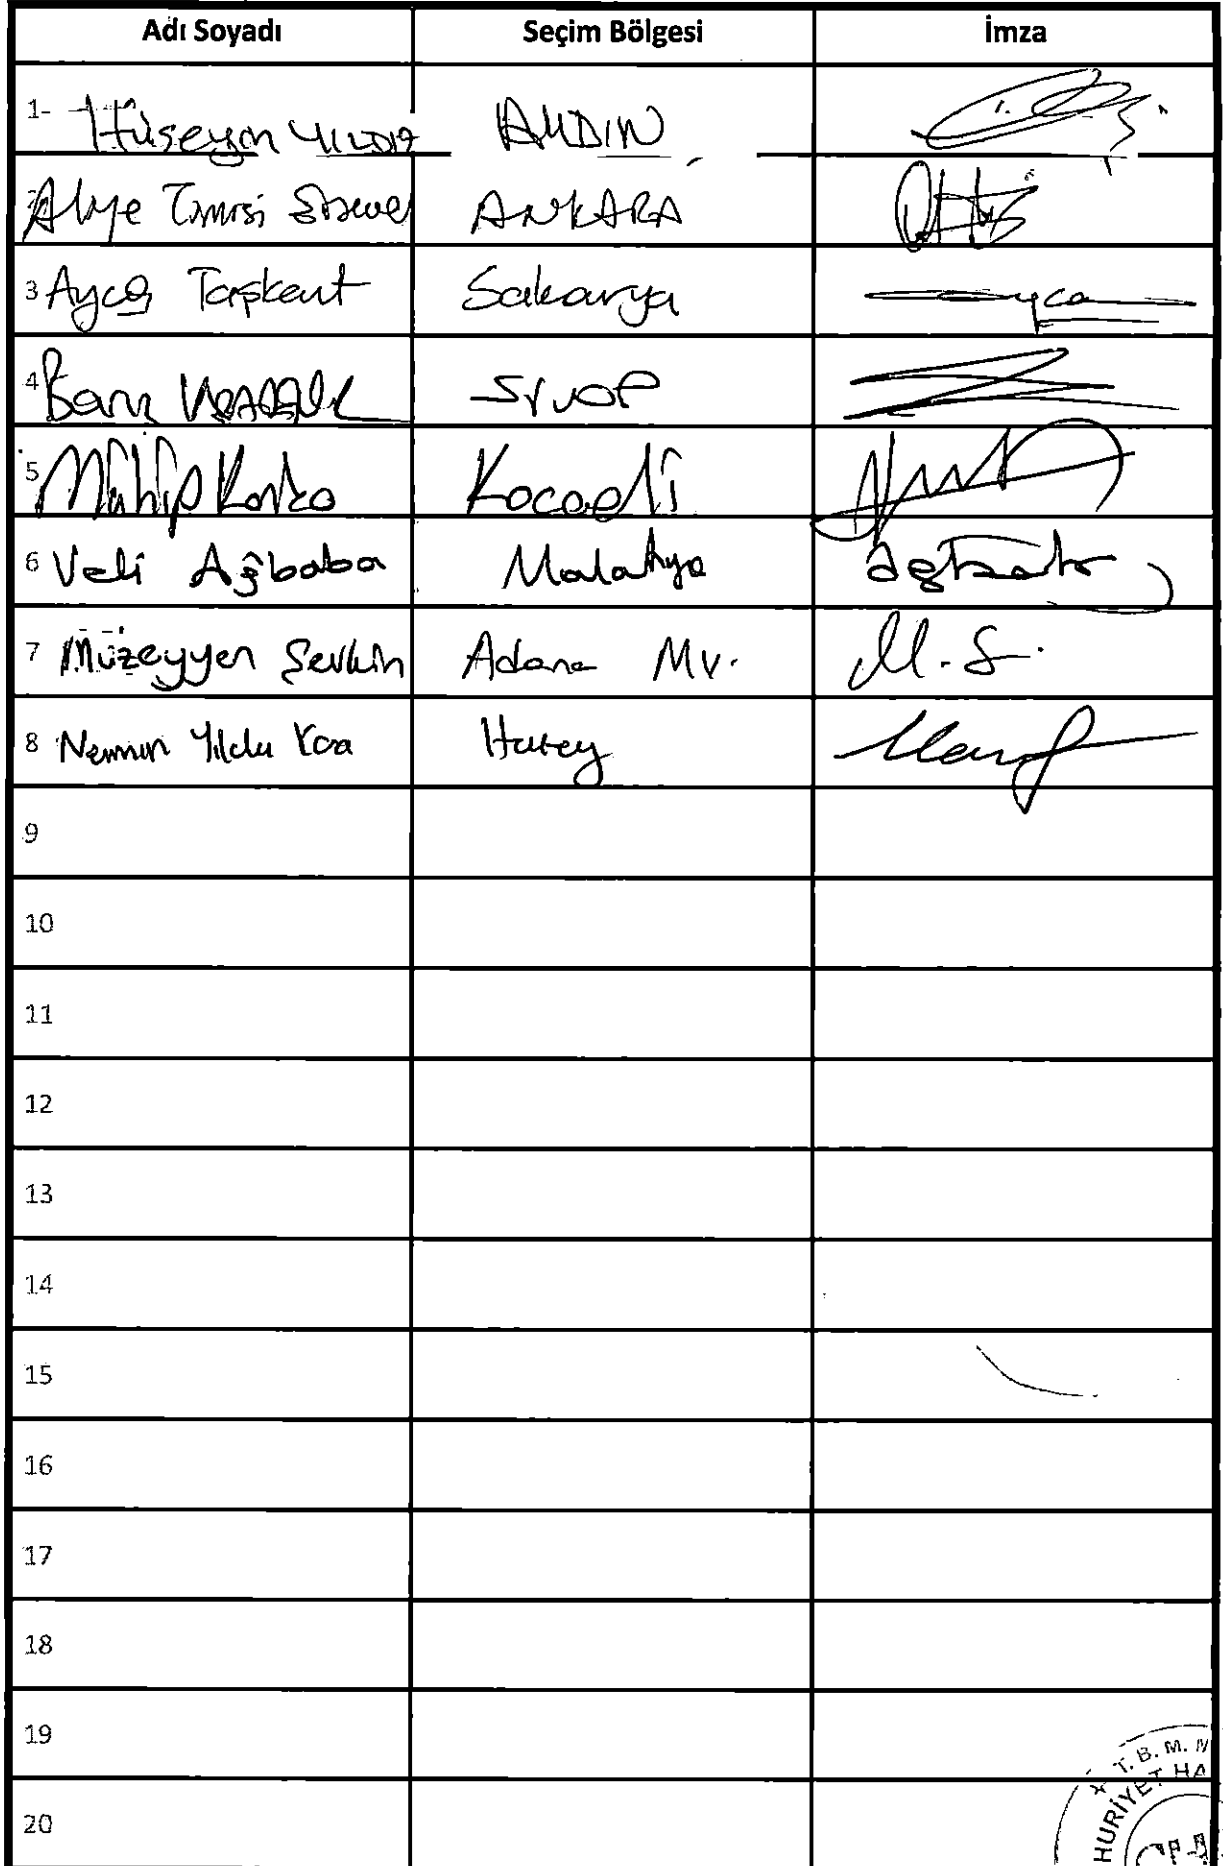 Adı Soyadı Seçim Bölgesi İmza
1- Hüseyin YILDIZ AYDIN
2 Aliye Timisi Ersever ANKARA
3 Ayça Taşkent Sakarya Ayça
4 Barış KARADENİZ SİNOP
5 Mühip Kanko Kocaeli
6 Veli Ağbaba Malatya
7 Müzeyyen Şevkin Adana Mv. M.Ş.
8 Nermin Yıldırım Kara Hatay
9
10
11
12
13
14
15
16
17
18
19
20
T.B.M.M
HURİYET HA